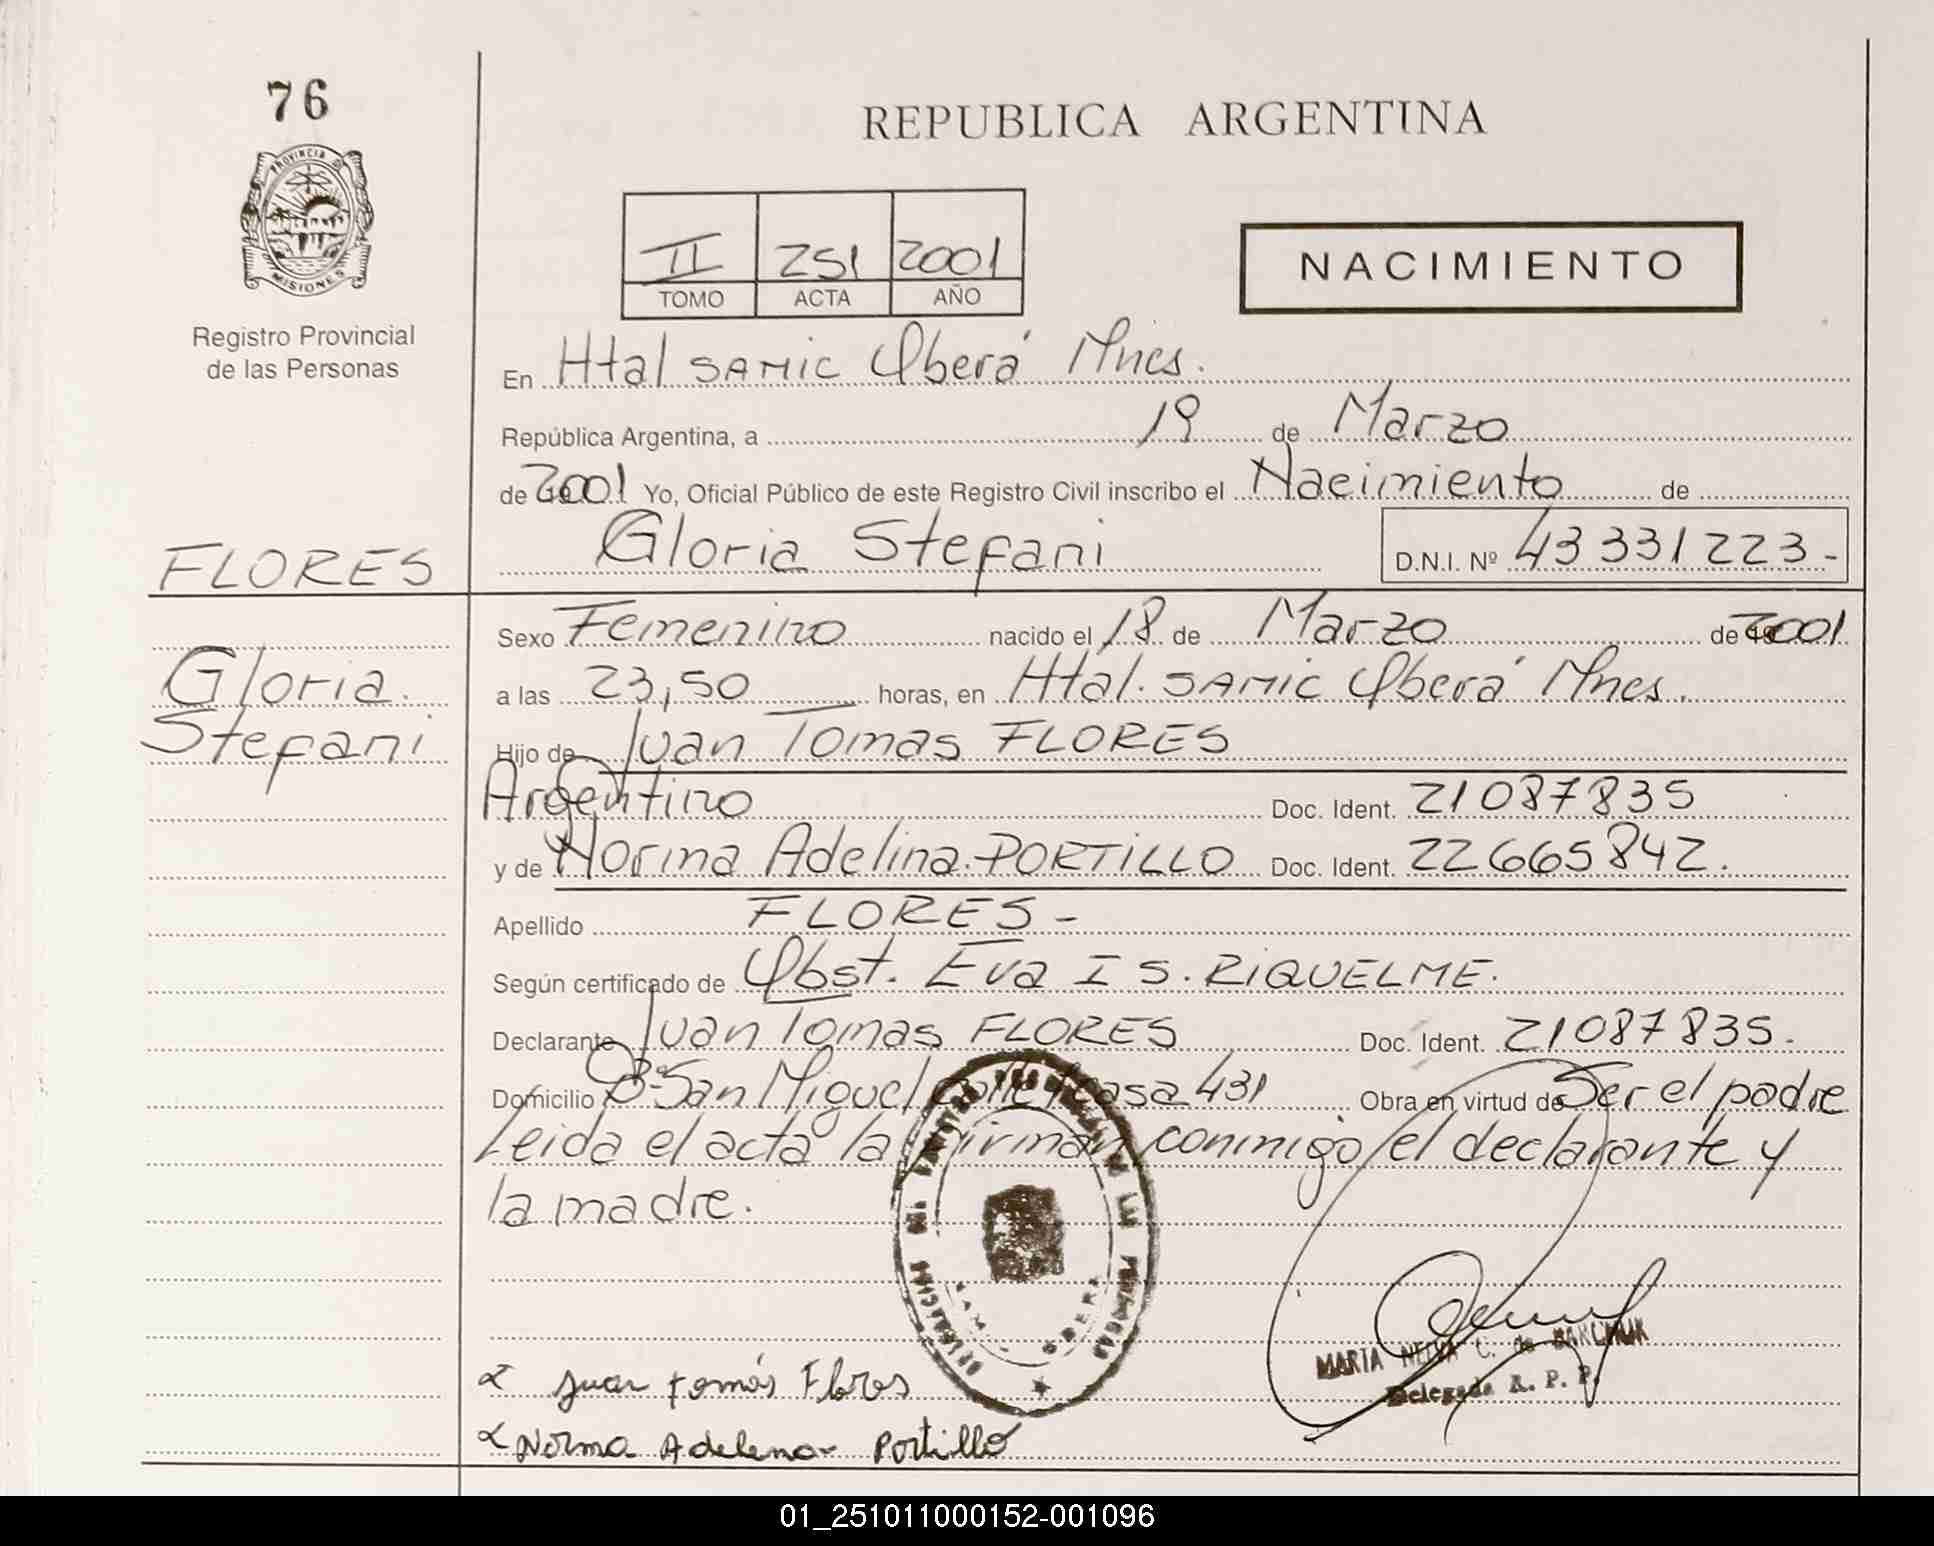 76
PROVINCIA DE
MISIONES
Registro Provincial
de las Personas
REPUBLICA ARGENTINA
II 251 2001
TOMO ACTA AÑO
NACIMIENTO
En Htal SAMIC Oberá Mnes.
República Argentina, a 19 de Marzo
de 2001 Yo, Oficial Público de este Registro Civil inscribo el Nacimiento de
Gloria Stefani D.N.I. Nº 43331223-
FLORES
Gloria
Stefani
Sexo Femenino nacido el 18 de Marzo de 2001
a las 23,50 horas, en Htal. SAMIC Oberá Mnes.
Hijo de Juan Tomas FLORES
Argentino Doc. Ident. 21087835
y de Norma Adelina PORTILLO Doc. Ident. 22665842.
Apellido FLORES-
Según certificado de Obst. Eva I S. RIQUELME.
Declarante Juan Tomas FLORES Doc. Ident. 21087835.
Domicilio Bº San Miguel casa 431 Obra en virtud de Ser el padre
Leida el acta la firman conmigo el declarante y
la madre.
MARIA C. de
Delegada R. P. P.
Juan tomás Flores
Norma Adelena Portillo
01_251011000152-001096